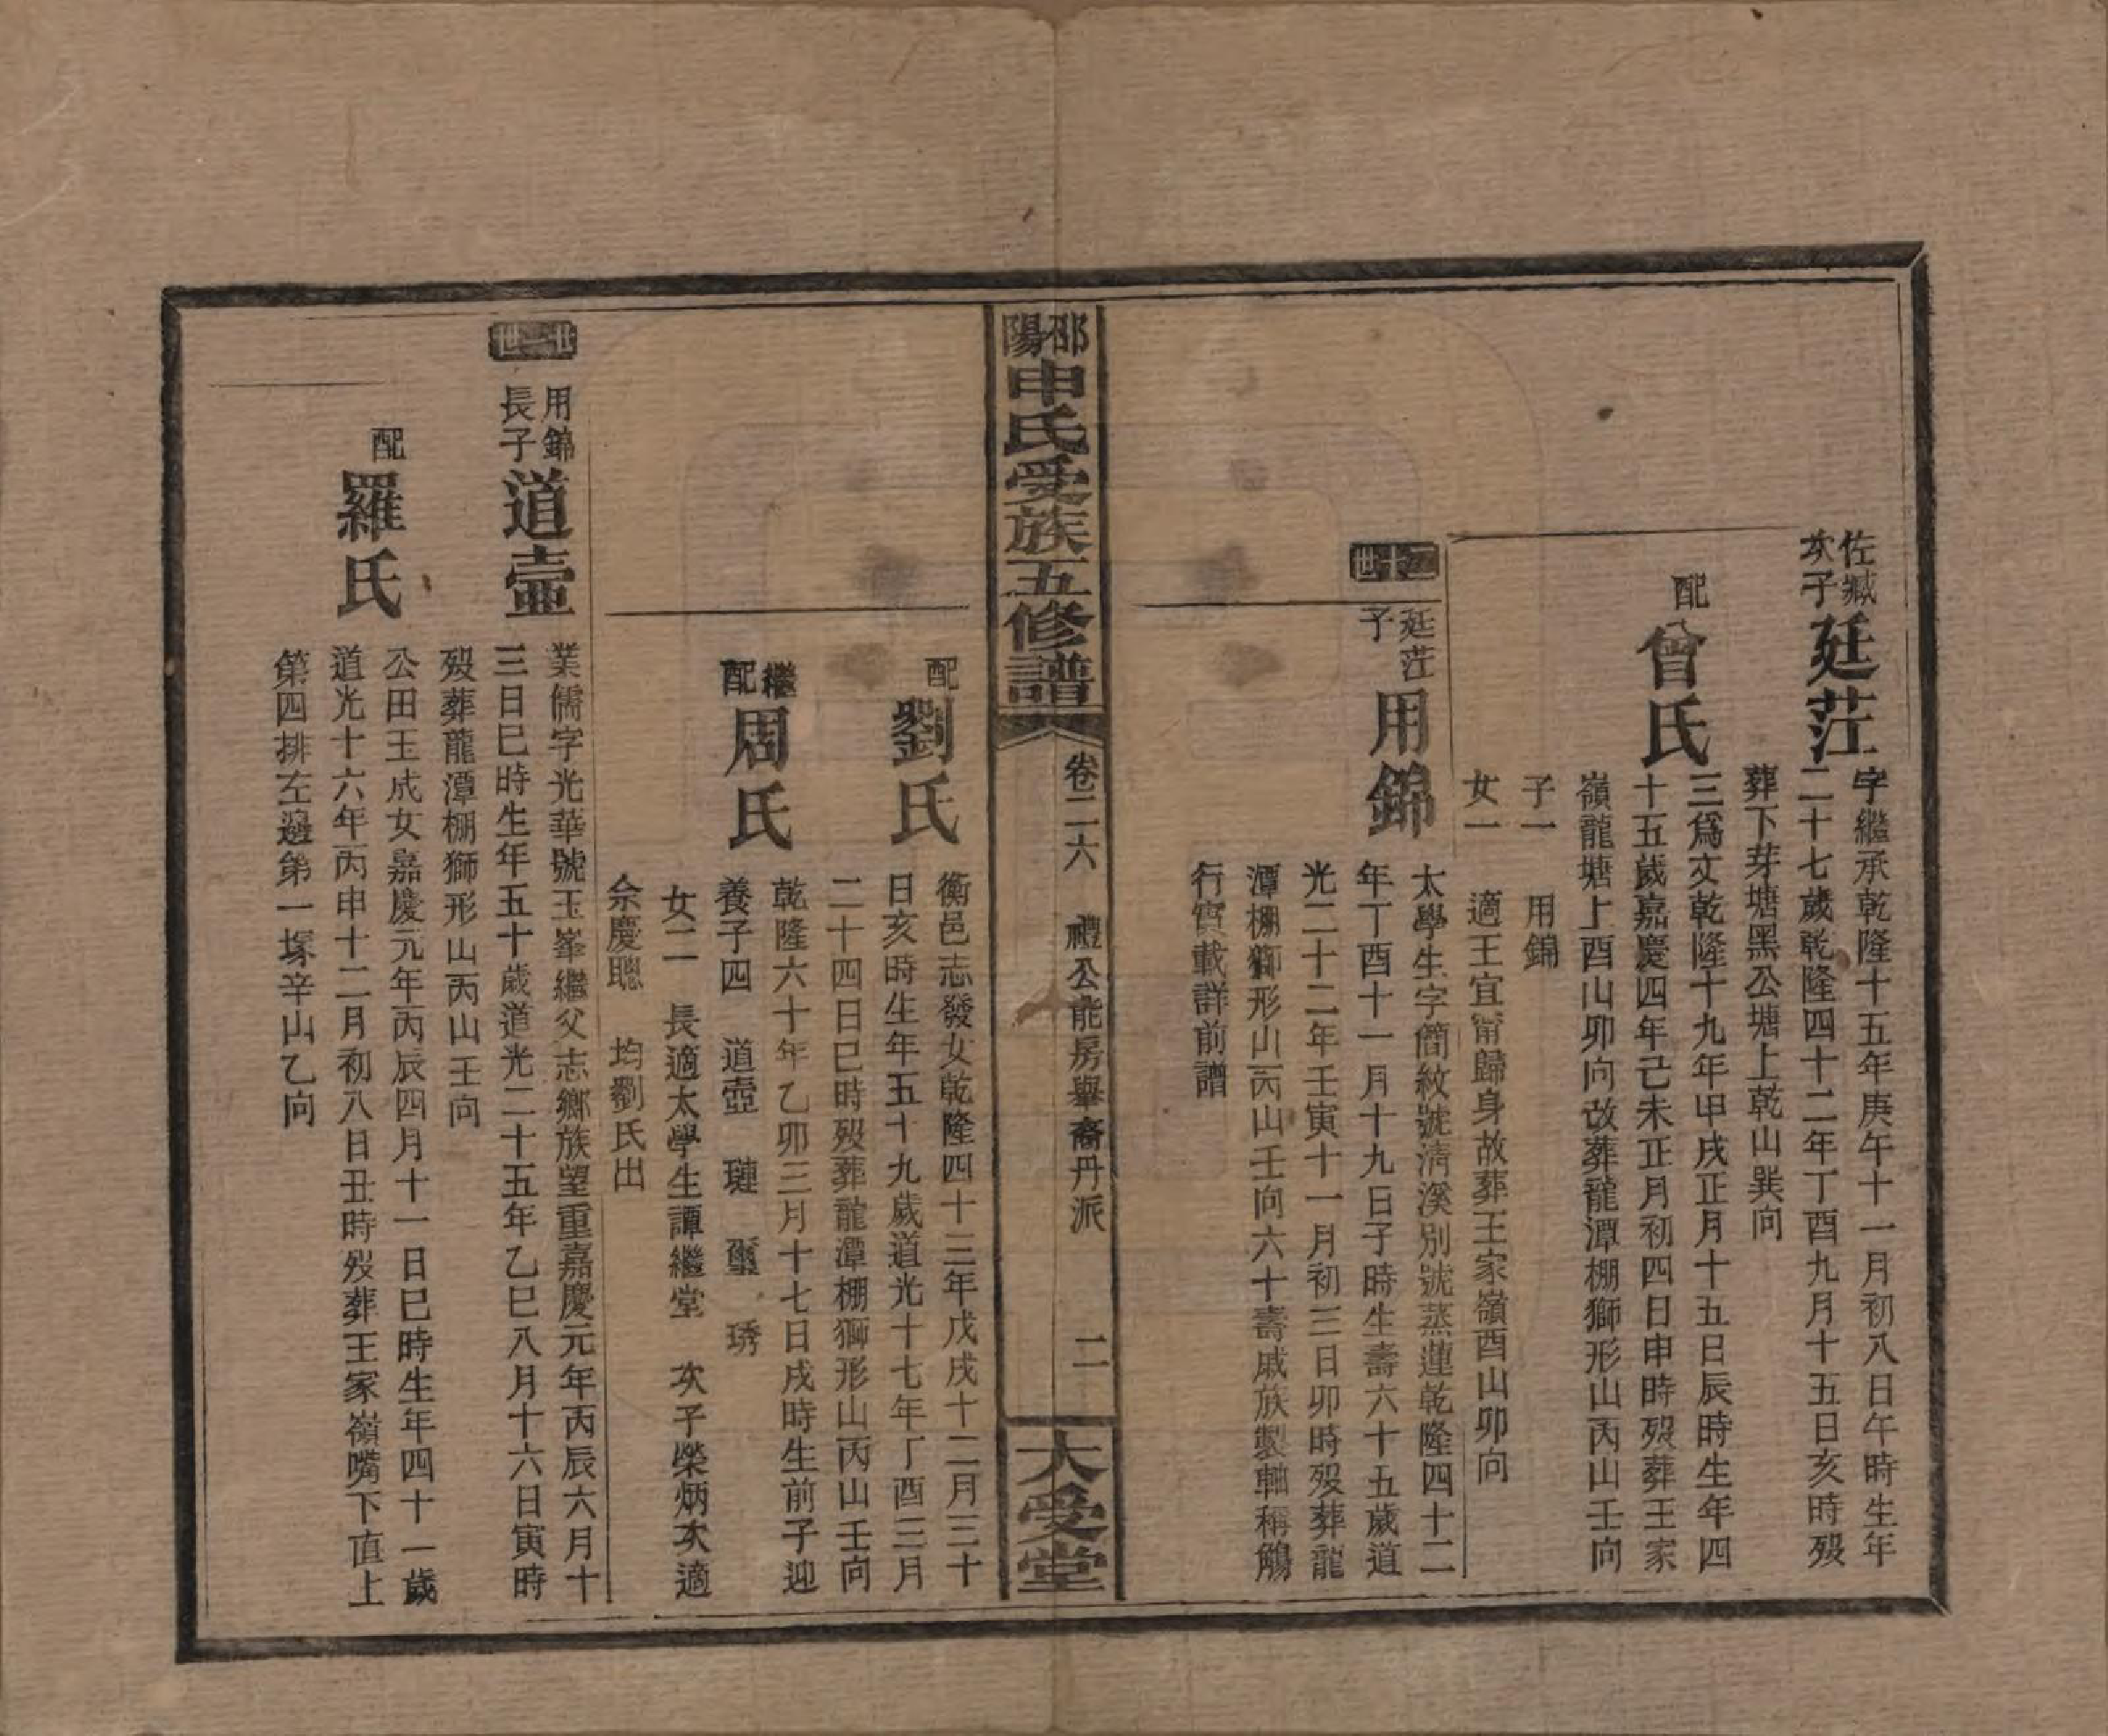 佐臧
次子
廷茳
字繼承乾隆十五年庚午十一月初八日午時生年
二十七歲乾隆四十二年丁酉九月十五日亥時歿
葬下芽塘黑公塘上乾山巽向
配
曾氏
三爲女乾隆十九年甲戌正月十五日辰時生年四
十五歲嘉慶四年己未正月初四日申時歿葬王家
嶺龍塘上酉山卯向改葬龍潭棚獅形山丙山壬向
子一 用錦
女一 適王宜甯歸身故葬王家嶺酉山卯向
二十世
廷茳
子
用錦
太學生字簡紋號清溪別號蒸蓮乾隆四十二
年丁酉十一月十九日子時生壽六十五歲道
光二十二年壬寅十一月初三日卯時歿葬龍
潭棚獅形山丙山壬向六十壽戚族製軸稱觴
行實載詳前譜
邵陽
申氏受族五修譜
卷二六 禮公能房舉裔丹派
二
大受堂
配
劉氏
衡邑志發女乾隆四十三年戊戌十二月三十
日亥時生年五十九歲道光十七年丁酉三月
二十四日巳時歿葬龍潭棚獅形山丙山壬向
繼
配
周氏
乾隆六十年乙卯三月十七日戌時生前子迎
養子四 道壼 璉 璽 琇
女二 長適太學生譚繼堂 次子榮炳次適
佘慶聰 均劉氏出
廿一世
用錦
長子
道壼
業儒字光華號玉峯繼父志鄉族望重嘉慶元年丙辰六月十
三日巳時生年五十歲道光二十五年乙巳八月十六日寅時
歿葬龍潭棚獅形山丙山壬向
配
羅氏
公田玉成女嘉慶元年丙辰四月十一日巳時生年四十一歲
道光十六年丙申十二月初八日丑時歿葬王家嶺嘴下直上
第四排左邊第一塚辛山乙向